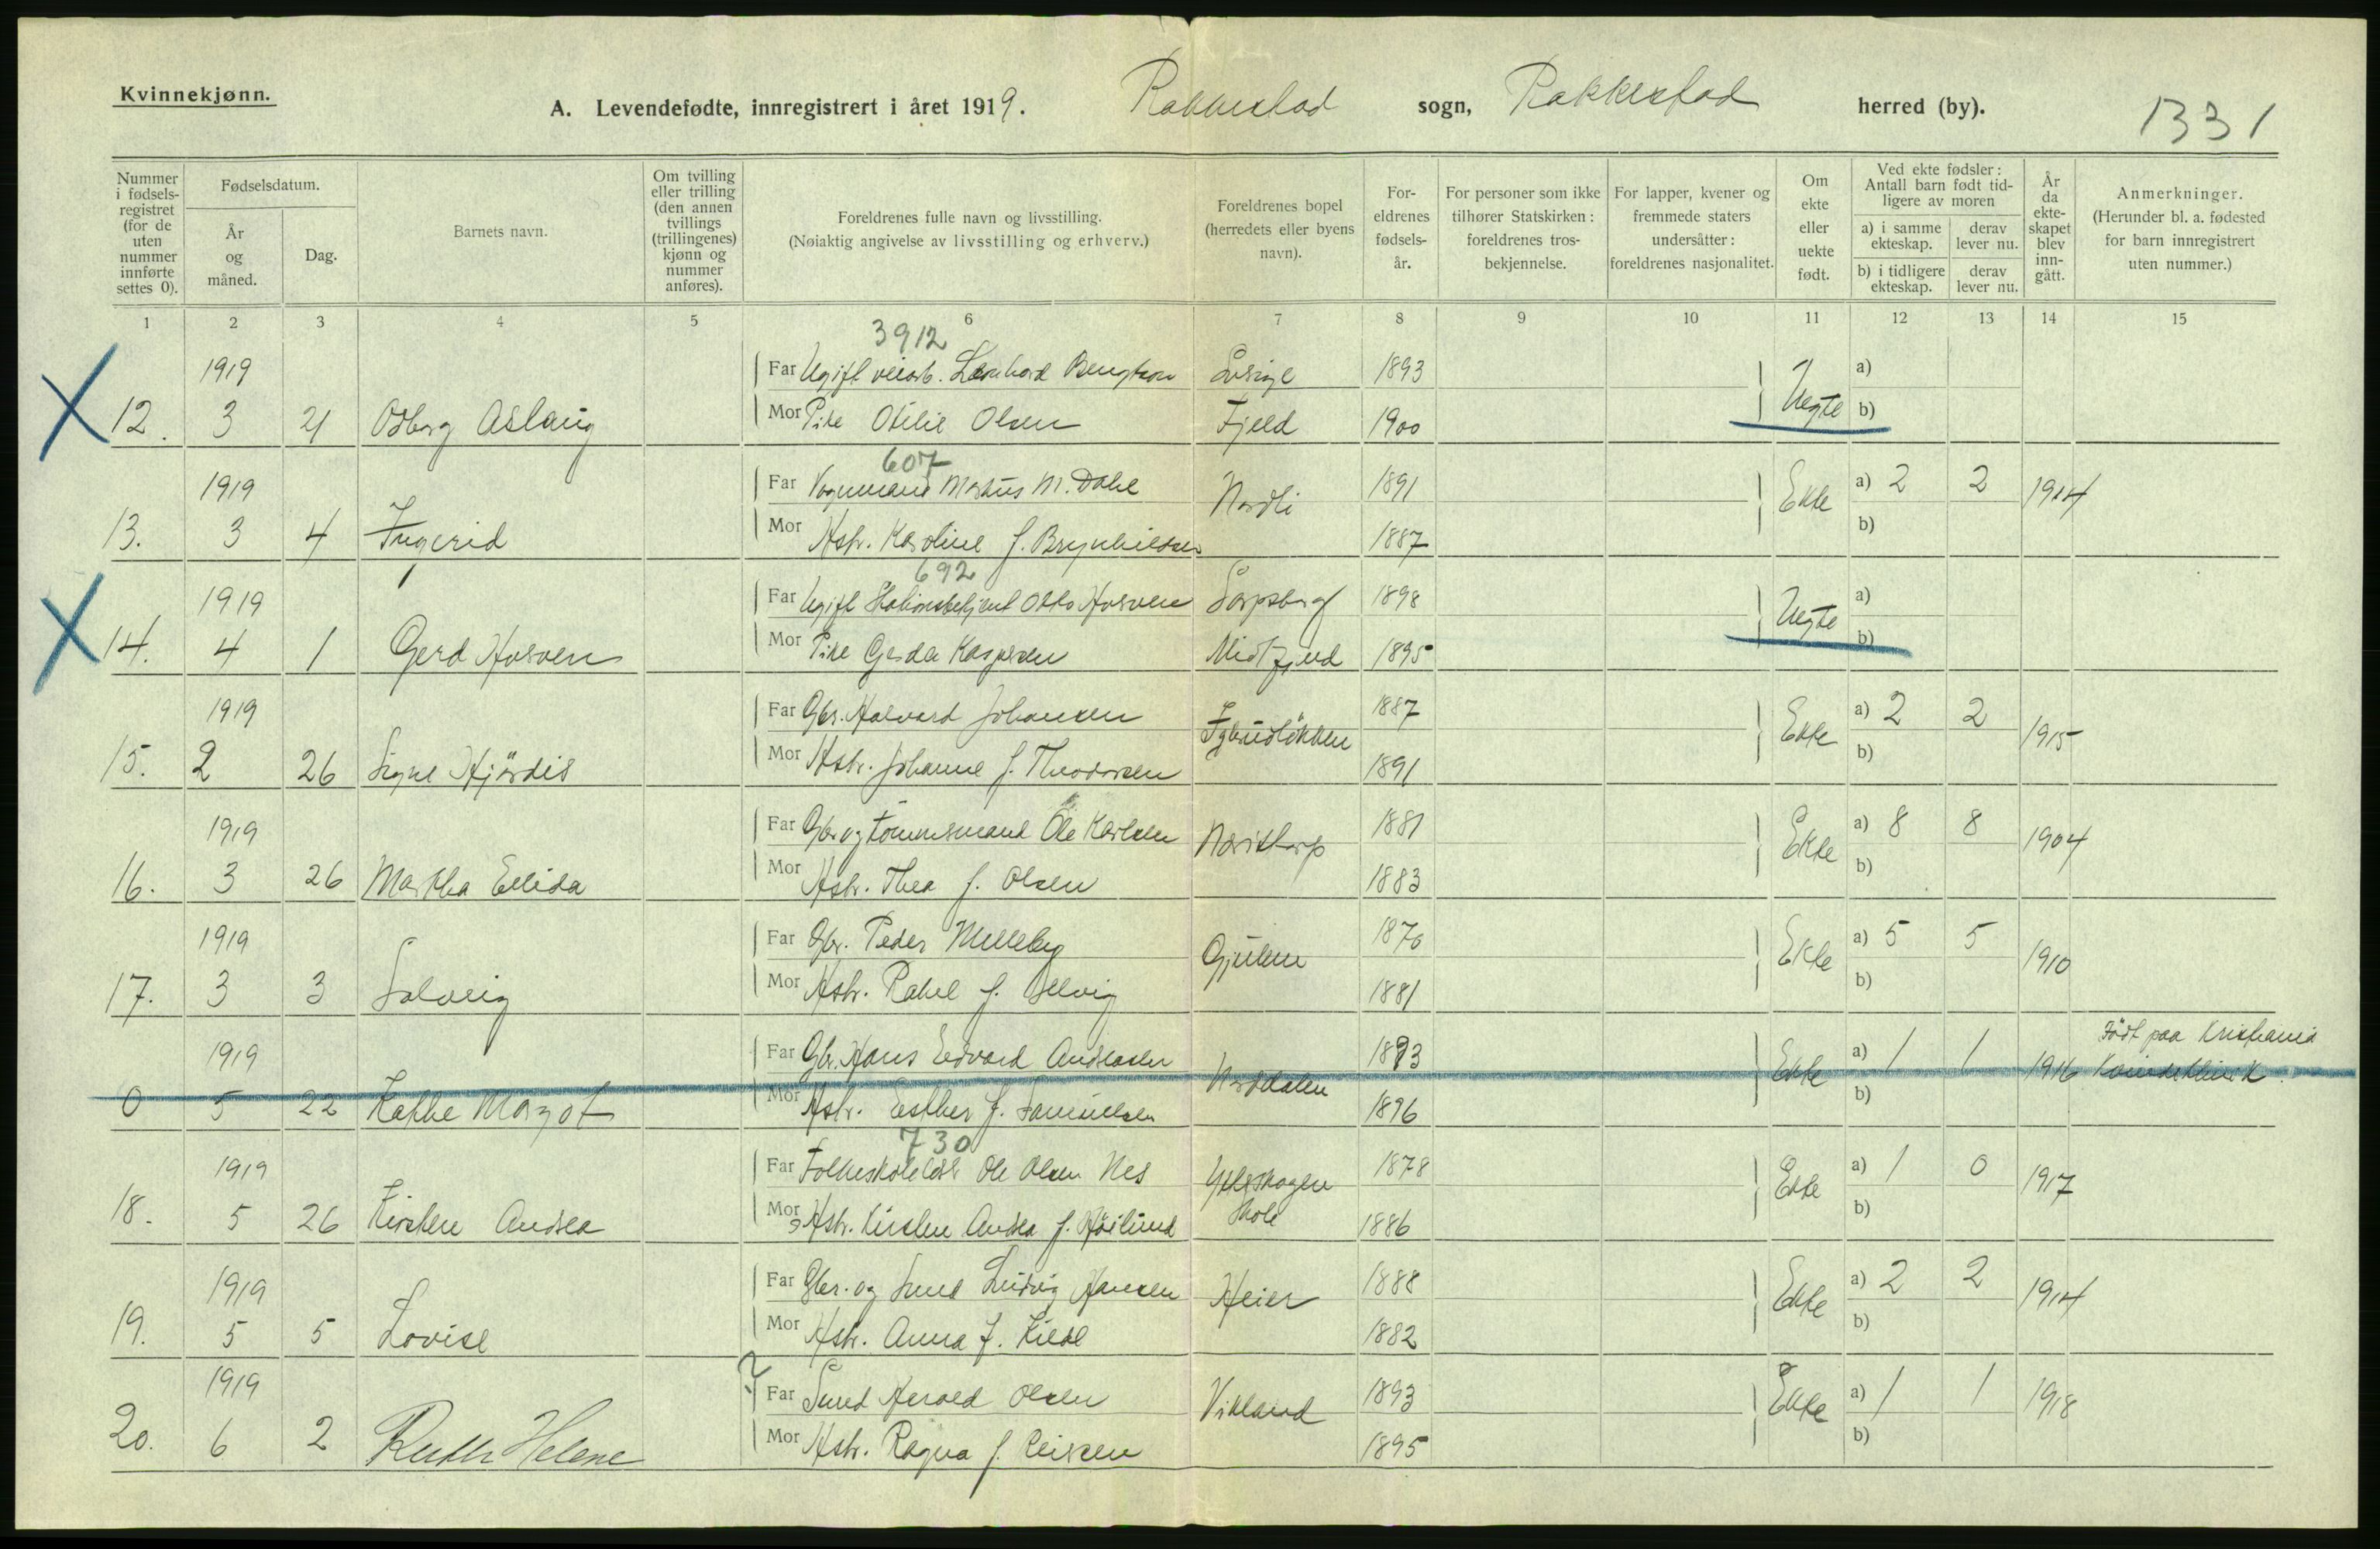 Kvinnekjønn.
A. Levendefødte, innregistrert i året 1919. Rakkestad sogn, Rakkestad herred (by). 1331
Nummer i fødselsregistret (for de uten nummer innførte settes 0).
Fødselsdatum.
År og måned.
Dag.
Barnets navn.
Om tvilling eller trilling (den annen tvillings (trillingenes) kjønn og nummer anføres).
Foreldrenes fulle navn og livsstilling.
(Nøiaktig angivelse av livsstilling og erhverv.)
Foreldrenes bopel (herredets eller byens navn).
Foreldrenes fødselsår.
For personer som ikke tilhører Statskirken: foreldrenes trosbekjennelse.
For lapper, kvener og fremmede staters undersåtter: foreldrenes nasjonalitet.
Om ekte eller uekte født.
Ved ekte fødsler: Antall barn født tidligere av moren
a) i samme ekteskap.
derav lever nu.
b) i tidligere ekteskap.
derav lever nu.
År da ekteskapet blev inngått.
Anmerkninger.
(Herunder bl. a. fødested for barn innregistrert uten nummer.)
1 2 3 4 5 6 7 8 9 10 11 12 13 14 15
3912
1919 Far Ugift veiarb. Bengtson Sverige 1893 a)
12. 3 21 Odborg Aslaug Mor Pike Otilie Olsen Fjeld 1900 Uegte b)
607
1919 Far Vognmand Markus M. Dahl Nordli 1891 Ekte a) 2 2 1914
13. 3 4 Ingerid Mor Hstr. Karoline f. Brynhildsen 1887 b)
692
1919 Far Ugift Stationsbetjent Otto Sarpsborg 1898 a)
14. 4 1 Gerd Mor Pike Gerda Kaspersen Midtfjeld 1895 Uegte b)
1919 Far Gbr. Halvard Johansen 1887 Ekte a) 2 2 1915
15. 2 26 Signe Hjördis Mor Hstr. Johanne f. Theodorsen 1891 b)
1919 Far Gbr. og tömmermand Ole Karlsen 1881 Ekte a) 8 8 1904
16. 3 26 Martha Ellida Mor Hstr. Thea f. Olsen 1883 b)
1919 Far Gbr. Peder Melleby Gjulem 1870 Ekte a) 5 5 1910
17. 3 3 Solveig Mor Hstr. Rakel f. 1881 b)
1919 Far Gbr. Hans Edvard Andreasen 1893 Ekte a) 1 1 1916 Födt paa Kristiania
0 5 22 Kathe Margot Mor Hstr. Esther f. Samuelsen 1896 b) Kvindeklinik.
730
1919 Far Ole Olsen Nes 1878 Ekte a) 1 0 1917
18. 5 26 Kirsten Andrea Mor Hstr. Kirsten Andrea f. Höilund Skole 1886 b)
1919 Far Gbr. og Smed Ludvig Hansen Heier 1888 Ekte a) 2 2 1914
19. 5 5 Lovise Mor Hstr. Anna f. 1882 b)
1919 Far Smed Harald Olsen Vikland 1893 Ekte a) 1 1 1918
20. 6 2 Ruth Helene Mor Hstr. Ragna f. 1895 b)